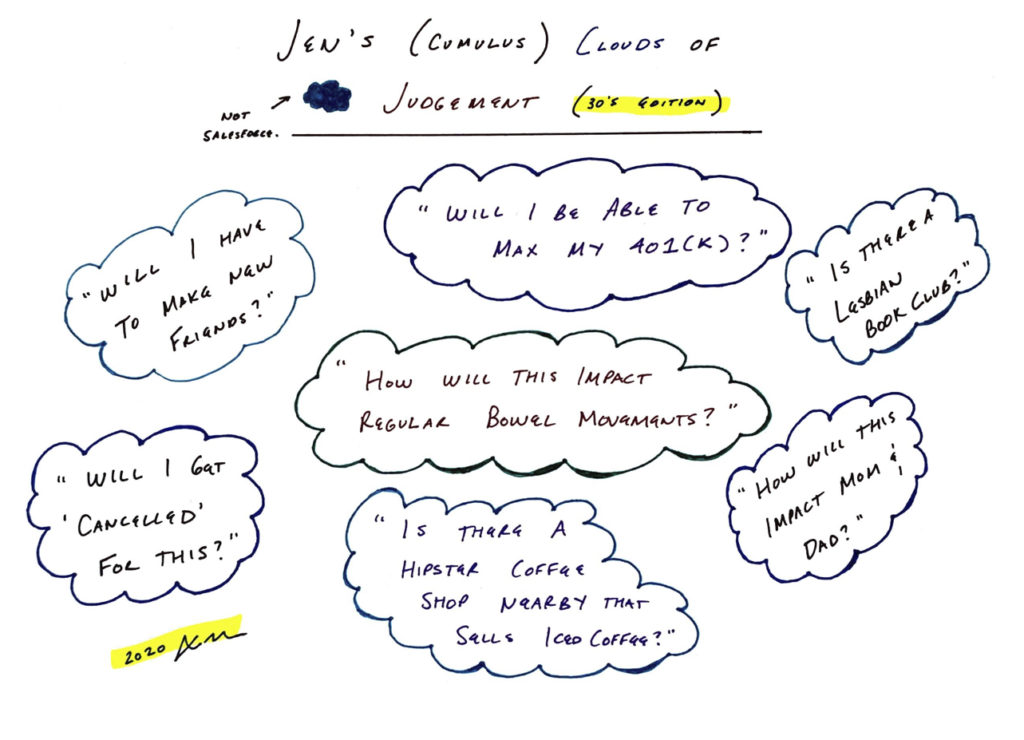 JEN'S (CUMULUS) CLOUDS OF
JUDGEMENT (30'S EDITION)
NOT
SALESFORCE.
"WILL I HAVE
TO MAKE NEW
FRIENDS?"
"WILL I BE ABLE TO
MAX MY 401(K)?"
"IS THERE A
LESBIAN
BOOK CLUB?"
"HOW WILL THIS IMPACT
REGULAR BOWEL MOVEMENTS?"
"WILL I GET
'CANCELLED'
FOR THIS?"
"IS THERE A
HIPSTER COFFEE
SHOP NEARBY THAT
SELLS ICED COFFEE?"
"HOW WILL THIS
IMPACT MOM &
DAD?"
2020